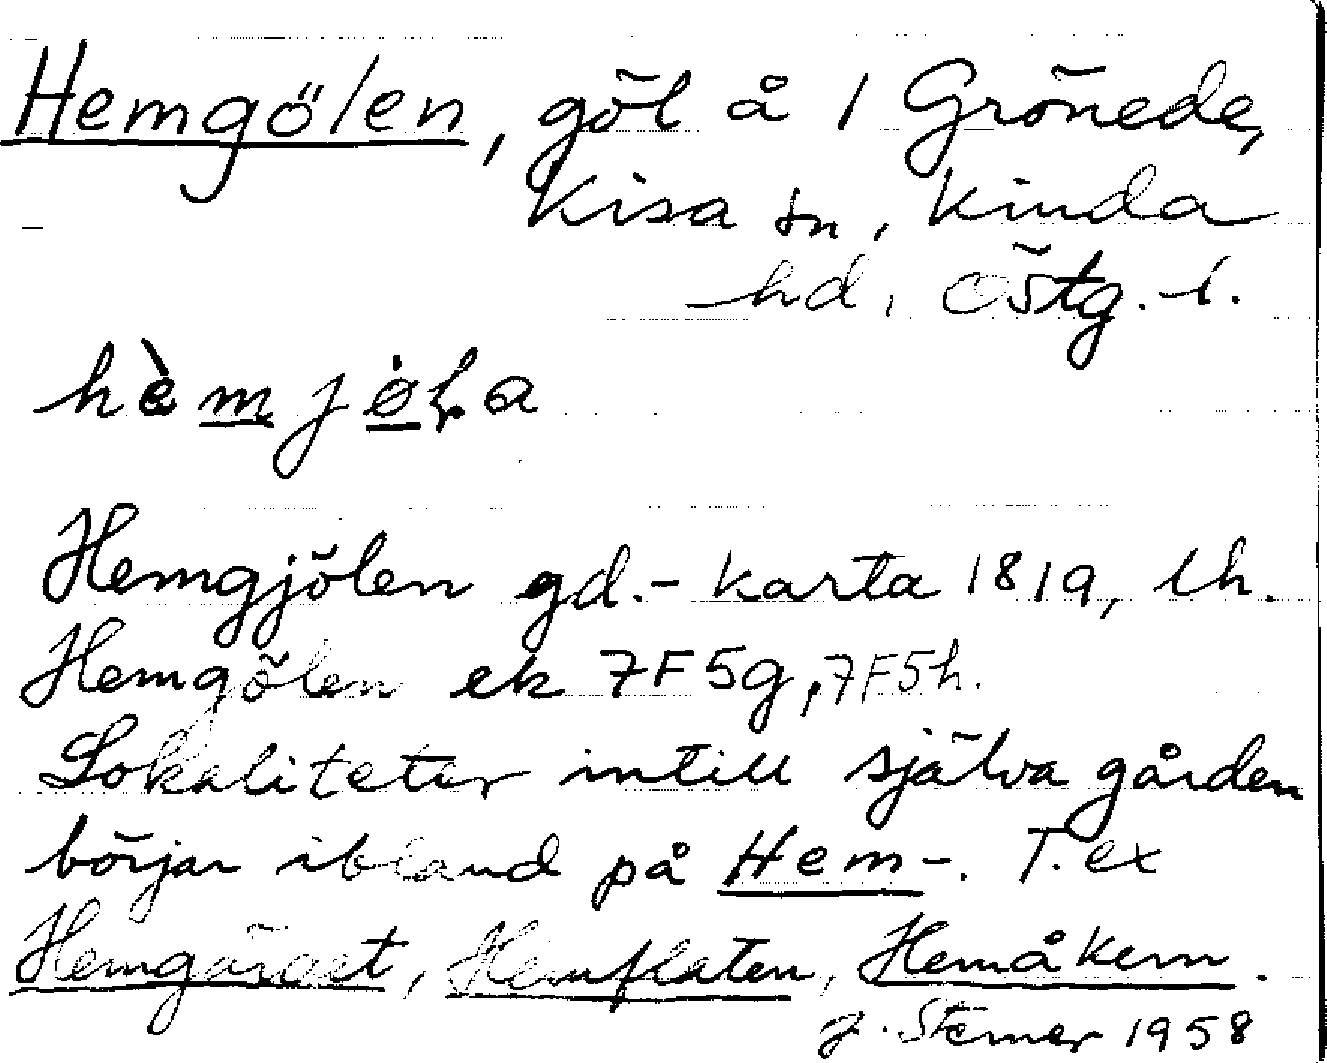 Hemgölen, göl å 1 Grönede,
Kisa sn, Kinda
hd, Östg. l.
hèmjøḷa
Hemgjölen gd.-karta 1819, lh.
Hemgölen ek 7F5g, 7F5h.
Lokaliteter intill själva gården
börjar ibland på Hem-. T.ex
Hemgärdet, Hemflaten, Hemåkern.
J. Sterner 1958